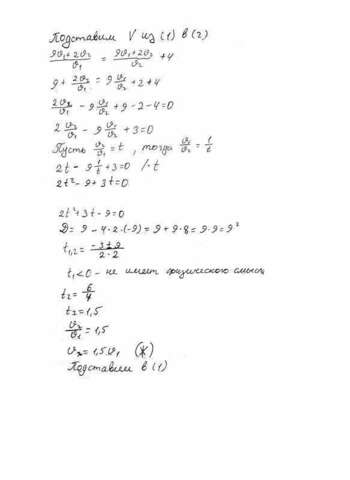 Подставим V из (1) в (2)
(9v₁+2v₂)/v₁ = (9v₁+2v₂)/v₂ + 4
9 + 2v₂/v₁ = 9 v₁/v₂ + 2 + 4
2v₂/v₁ - 9 v₁/v₂ + 9 - 2 - 4 = 0
2 v₂/v₁ - 9 v₁/v₂ + 3 = 0
Пусть v₂/v₁ = t, тогда v₁/v₂ = 1/t
2t - 9 1/t + 3 = 0 /·t
2t² - 9 + 3t = 0
2t² + 3t - 9 = 0
D = 9 - 4·2·(-9) = 9 + 9·8 = 9·9 = 9²
t₁,₂ = (-3±9)/(2·2)
t₁<0 - не имеет физического смысла
t₂ = 6/4
t₂ = 1,5
v₂/v₁ = 1,5
v₂ = 1,5 v₁ (*)
Подставим в (1)